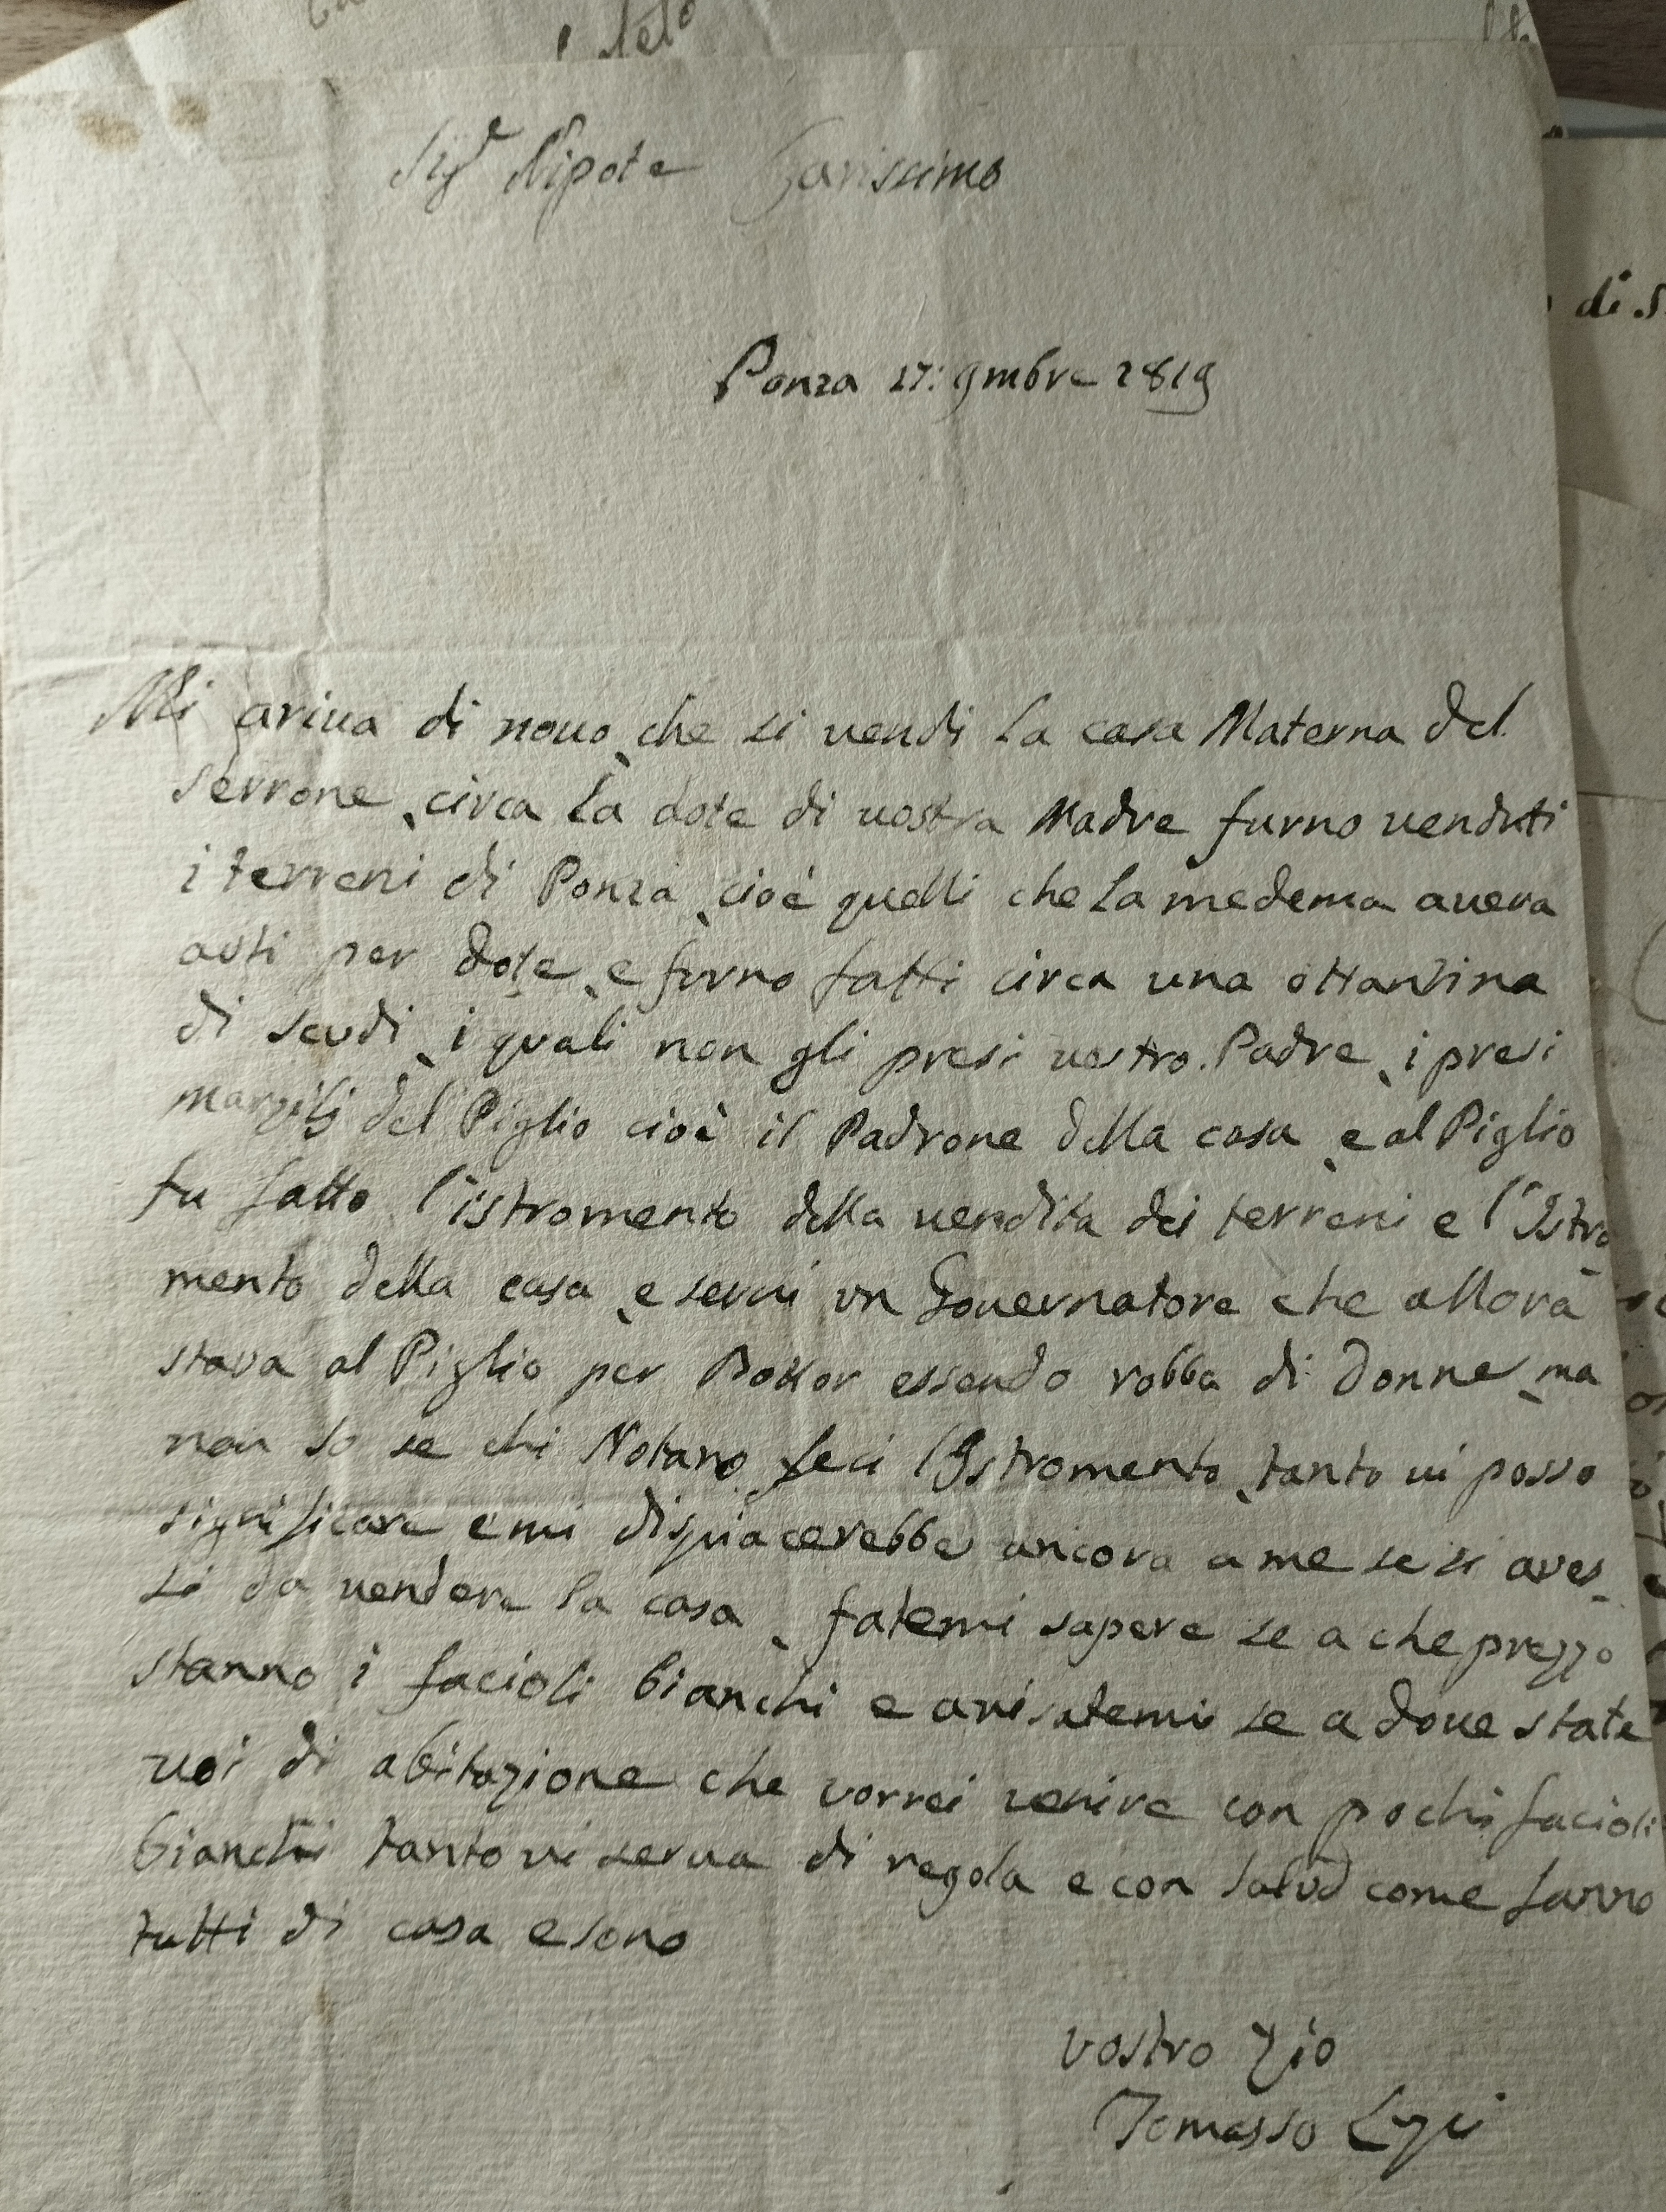 Sig.e Nipote Carissimo
Ponza 17: 9mbre 1819
Mi ariva di novo, che si vendi la casa Materna del
serrone, circa la dote di vostra Madre furno venduti
i terreni di Ponza, cioè quelli che la medema aveva
auti per dote, e furno fatti circa una ottantina
di scudi, i quali non gli presi vostro Padre, i presi
marzilj del Piglio cioè il Padrone della casa, e al Piglio
fu fatto l'istromento della vendita dei terreni e l'Istro
mento della casa, e servi un Governatore che allora
stava al Piglio per Dottor essendo robba di Donne, ma
non so se chi Notaro feci l'Istromento, tanto vi posso
significare e mi dispiacerebbe ancora a me se si aves_
si da vendere la casa, fatemi sapere se a che prezzo
stanno i facioli bianchi e avisatemi se a dove state
voi di abitazione che vorrei venire con pochi facioli
bianchi tanto vi serva di regola e con salud come fanno
tutti di casa e sono
vostro Zio
Tomasso